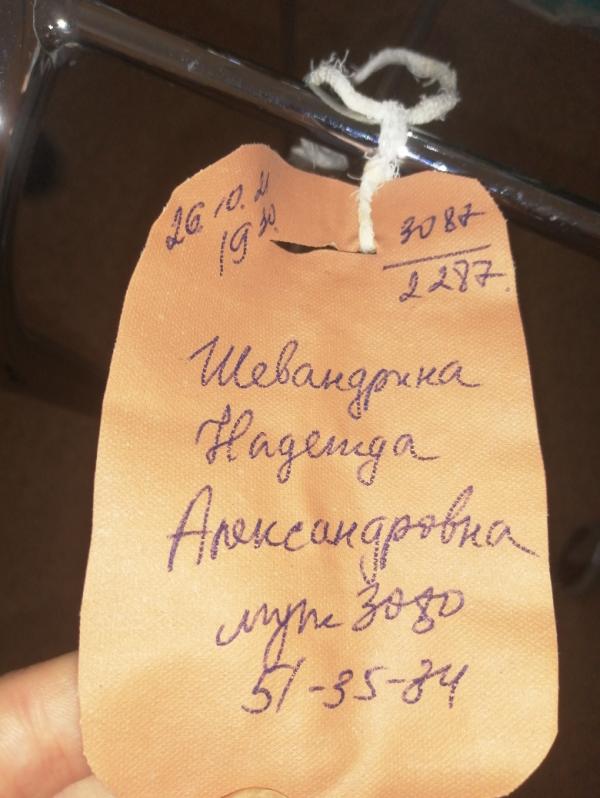 26.10.21
19 30
3087
2287.
Шевандрина
Надежда
Александровна
муж 3080
51-35-34